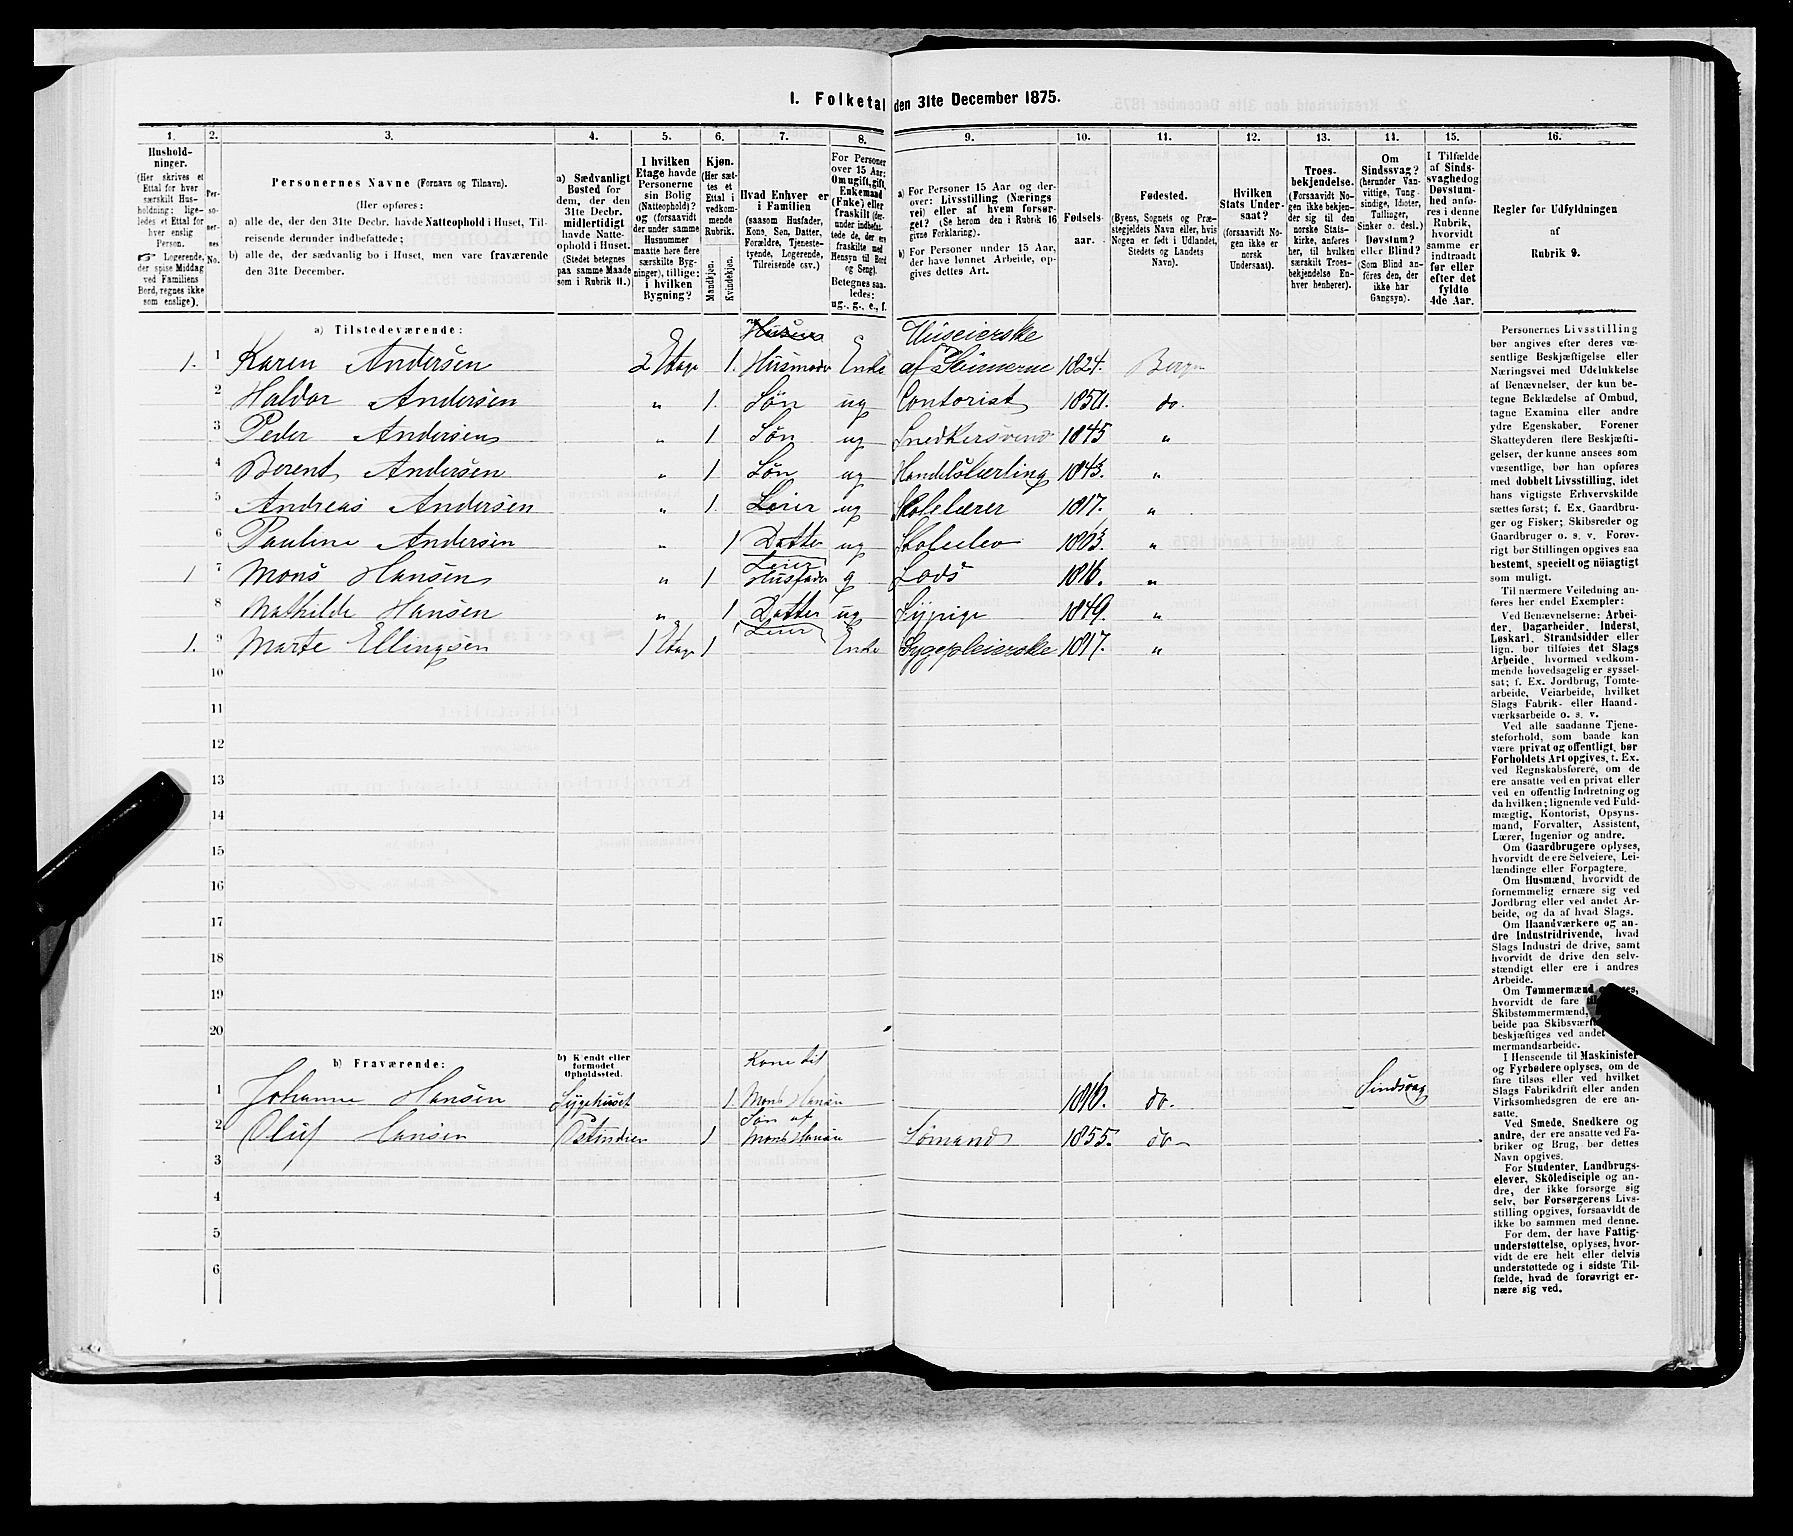 I. Folketal den 31te December 1875.
1. 2. 3. 4. 5. 6. 7. 8. 9. 10. 11. 12. 13. 14. 15. 16.
Hushold-
ninger.
(Her skrives et
Ettal for hver
særskilt Hus-
holdning; lige-
ledes et Ettal for
hver enslig
Person.
☞ Logerende,
der spise Middag
ved Familiens
Bord, regnes ikke
som enslige).
Per-
so-
ner-
nes
No.
Personernes Navne (Fornavn og Tilnavn).
(Her opføres:
a) alle de, der den 31te Decbr. havde Natteophold i Huset, Til-
reisende derunder indbefattede;
b) alle de, der sædvanlig bo i Huset, men vare fraværende
den 31te December.
a) Sædvanligt
Bosted for
dem, der den
31te Decbr.
midlertidigt
havde Natte-
ophold i Huset.
(Stedet betegnes
paa samme Maade
som i Rubrik 11.)
I hvilken
Etage havde
Personerne
sin Bolig
(Natteophold)?
og (forsaavidt
der under samme
Husnummer
maatte høre flere
særskilte Byg-
ninger), tillige:
i hvilken
Bygning?
Kjøn.
(Her sæt-
tes et
Ettal i
vedkom-
mende
Rubrik.
Mandkjøn.
Kvindekjøn.
Hvad Enhver er
i Familien
(saasom Husfader,
Kone, Søn, Datter,
Forældre, Tjeneste-
tyende, Logerende,
Tilreisende osv.)
For Personer
over 15 Aar:
Om ugift, gift,
Enkemand
(Enke) eller
fraskilt (der-
under indbefat-
tede de, der ere
fraskilte med
Hensyn til Bord
og Seng).
Betegnes saa-
ledes:
ug., g., e., f.
a) For Personer 15 Aar og der-
over: Livsstilling (Nærings-
vei) eller af hvem forsør-
get? (Se herom den i Rubrik 16
givne Forklaring).
b) For Personer under 15 Aar,
der have lønnet Arbeide, op-
gives dettes Art.
Fødsels-
aar.
Fødested.
(Byens, Sognets og Præ-
stegjeldets Navn eller, hvis
Nogen er født i Udlandet,
Stedets og Landets
Navn).
Hvilken
Stats Under-
saat?
(forsaavidt No-
gen ikke er
norsk
Undersaat).
Troes-
bekjendelse.
(Forsaavidt No-
gen ikke bekjen-
der sig til den
norske Stats-
kirke, anføres
her, til hvilken
særskilt Troes-
bekjendelse En-
hver henhører).
Om
Sindssvag?
(herunder Van-
vittige, Tung-
sindige, Idioter,
Tullinger,
Sinker o. desl.)
Døvstum?
eller Blind?
(Som Blind an-
føres den, der
ikke har
Gangsyn).
I Tilfælde
af Sinds-
svaghed og
Døvstum-
hed anfø-
res i denne
Rubrik,
hvorvidt
samme er
indtraadt
før eller
efter det
fyldte
4de Aar.
Regler for Udfyldningen
af
Rubrik 9.
a) Tilstedeværende:
1. 1 Karen Andersen 2 Etage 1. Husmoder Enke Huseierske af Huserne 1824. Bergen
2 Haldor Andersen " 1. Søn ug Contorist 1850. do.
3 Peder Andersen " 1 Søn ug Snedkersvend 1845 "
4 Berent Andersen " 1 Søn ug Handelslærling "
5 Andreas Andersen " 1. ug Skolelærer 1817. "
6 Pauline Andersen " 1 Datter ug Skoleelev "
1 7 Mons Hansen " 1 Husfader g Lods 1816. "
8 Mathilde Hansen " 1 Datter ug Sypige 1849. "
1. 9 Marte Ellingsen 1 Etage 1 Enke Sygepleierske 1817. "
10
11
12
13
14
15
16
17
18
19
20
b) Fraværende:
b) Kjendt eller
formodet
Opholdssted.
1 Johanne Hansen Sygehuset 1. Kone til Mons Hansen 1816. do. Sindsvag
2 Oluf Hansen Ostindien 1 Søn af Mons Hansen Sømand 1855. do
3
4
5
6
Personernes Livsstilling
bør angives efter deres væ-
sentlige Beskjæftigelse eller
Næringsvei med Udelukkelse
af Benævnelser, der kun be-
tegne Beklædelse af Ombud,
tagne Examina eller andre
ydre Egenskaber. Forener
Skatteyderen flere Beskjæfti-
gelser, der kunne ansees som
væsentlige, bør han opføres
med dobbelt Livsstilling, idet
hans vigtigste Erhvervskilde
sættes først; f. Ex. Gaardbru-
ger og Fisker; Skibsreder og
Gaardbruger o. s. v. Forøv-
rigt bør Stillingen opgives saa
bestemt, specielt og nøiagtigt
som muligt.
Til nærmere Veiledning an-
føres her endel Exempler:
Ved Benævnelserne: Arbei-
der, Dagarbeider, Inderst,
Løskarl, Strandsidder eller
lign. bør tilføies det Slags
Arbeide, hvormed vedkom-
mende hovedsagelig er syssel-
sat; f. Ex. Jordbrug, Tomte-
arbeide, Veiarbeide, hvilket
Slags Fabrik- eller Haand-
værksarbeide o. s. v.
Ved alle saadanne Tjene-
steforhold, som baade kan
være privat og offentligt, bør
Forholdets Art opgives, t. Ex.
ved Regnskabsførere, om de
ere ansatte ved en privat eller
ved en offentlig Indretning og
da hvilken; lignende ved Fuld-
mægtig, Kontorist, Opsyns-
mand, Forvalter, Assistent,
Lærer, Ingeniør og andre.
Om Gaardbrugere oplyses,
hvorvidt de ere Selveiere, Lei-
lændinge eller Forpagtere.
Om Husmænd, hvorvidt de
fornemmelig ernære sig ved
Jordbrug eller ved andet Ar-
beide, og da af hvad Slags.
Om Haandværkere og an-
dre Industridrivende, hvad
Slags Industri de drive, samt
hvorvidt de drive den selv-
stændigt eller ere i andres
Arbeide.
Om Tømmermænd
hvorvidt de fare
Skibstømmermænd,
beide paa
beskjæftiges ved andet
mermandsarbeide.
I Henseende til Maskinister
og Fyrbødere oplyses, om de
fare tilsøs eller ved hvilket
Slags Fabrikdrift eller anden
Virksomhedsgren de ere an-
satte.
Ved Smede, Snedkere og
andre, der ere ansatte ved Fa-
briker og Brug, bør dettes
Navn opgives.
For Studenter, Landbrugs-
elever, Skoledisciple og an-
dre, der ikke forsørge sig
selv, bør Forsørgerens Livs-
stilling opgives, forsaavidt de
ikke bo sammen med denne.
For dem, der have Fattig-
understøttelse, oplyses, hvor-
vidt de ere helt eller delvis
understøttede og i sidste Til-
fælde, hvad de forøvrigt er-
nære sig ved.